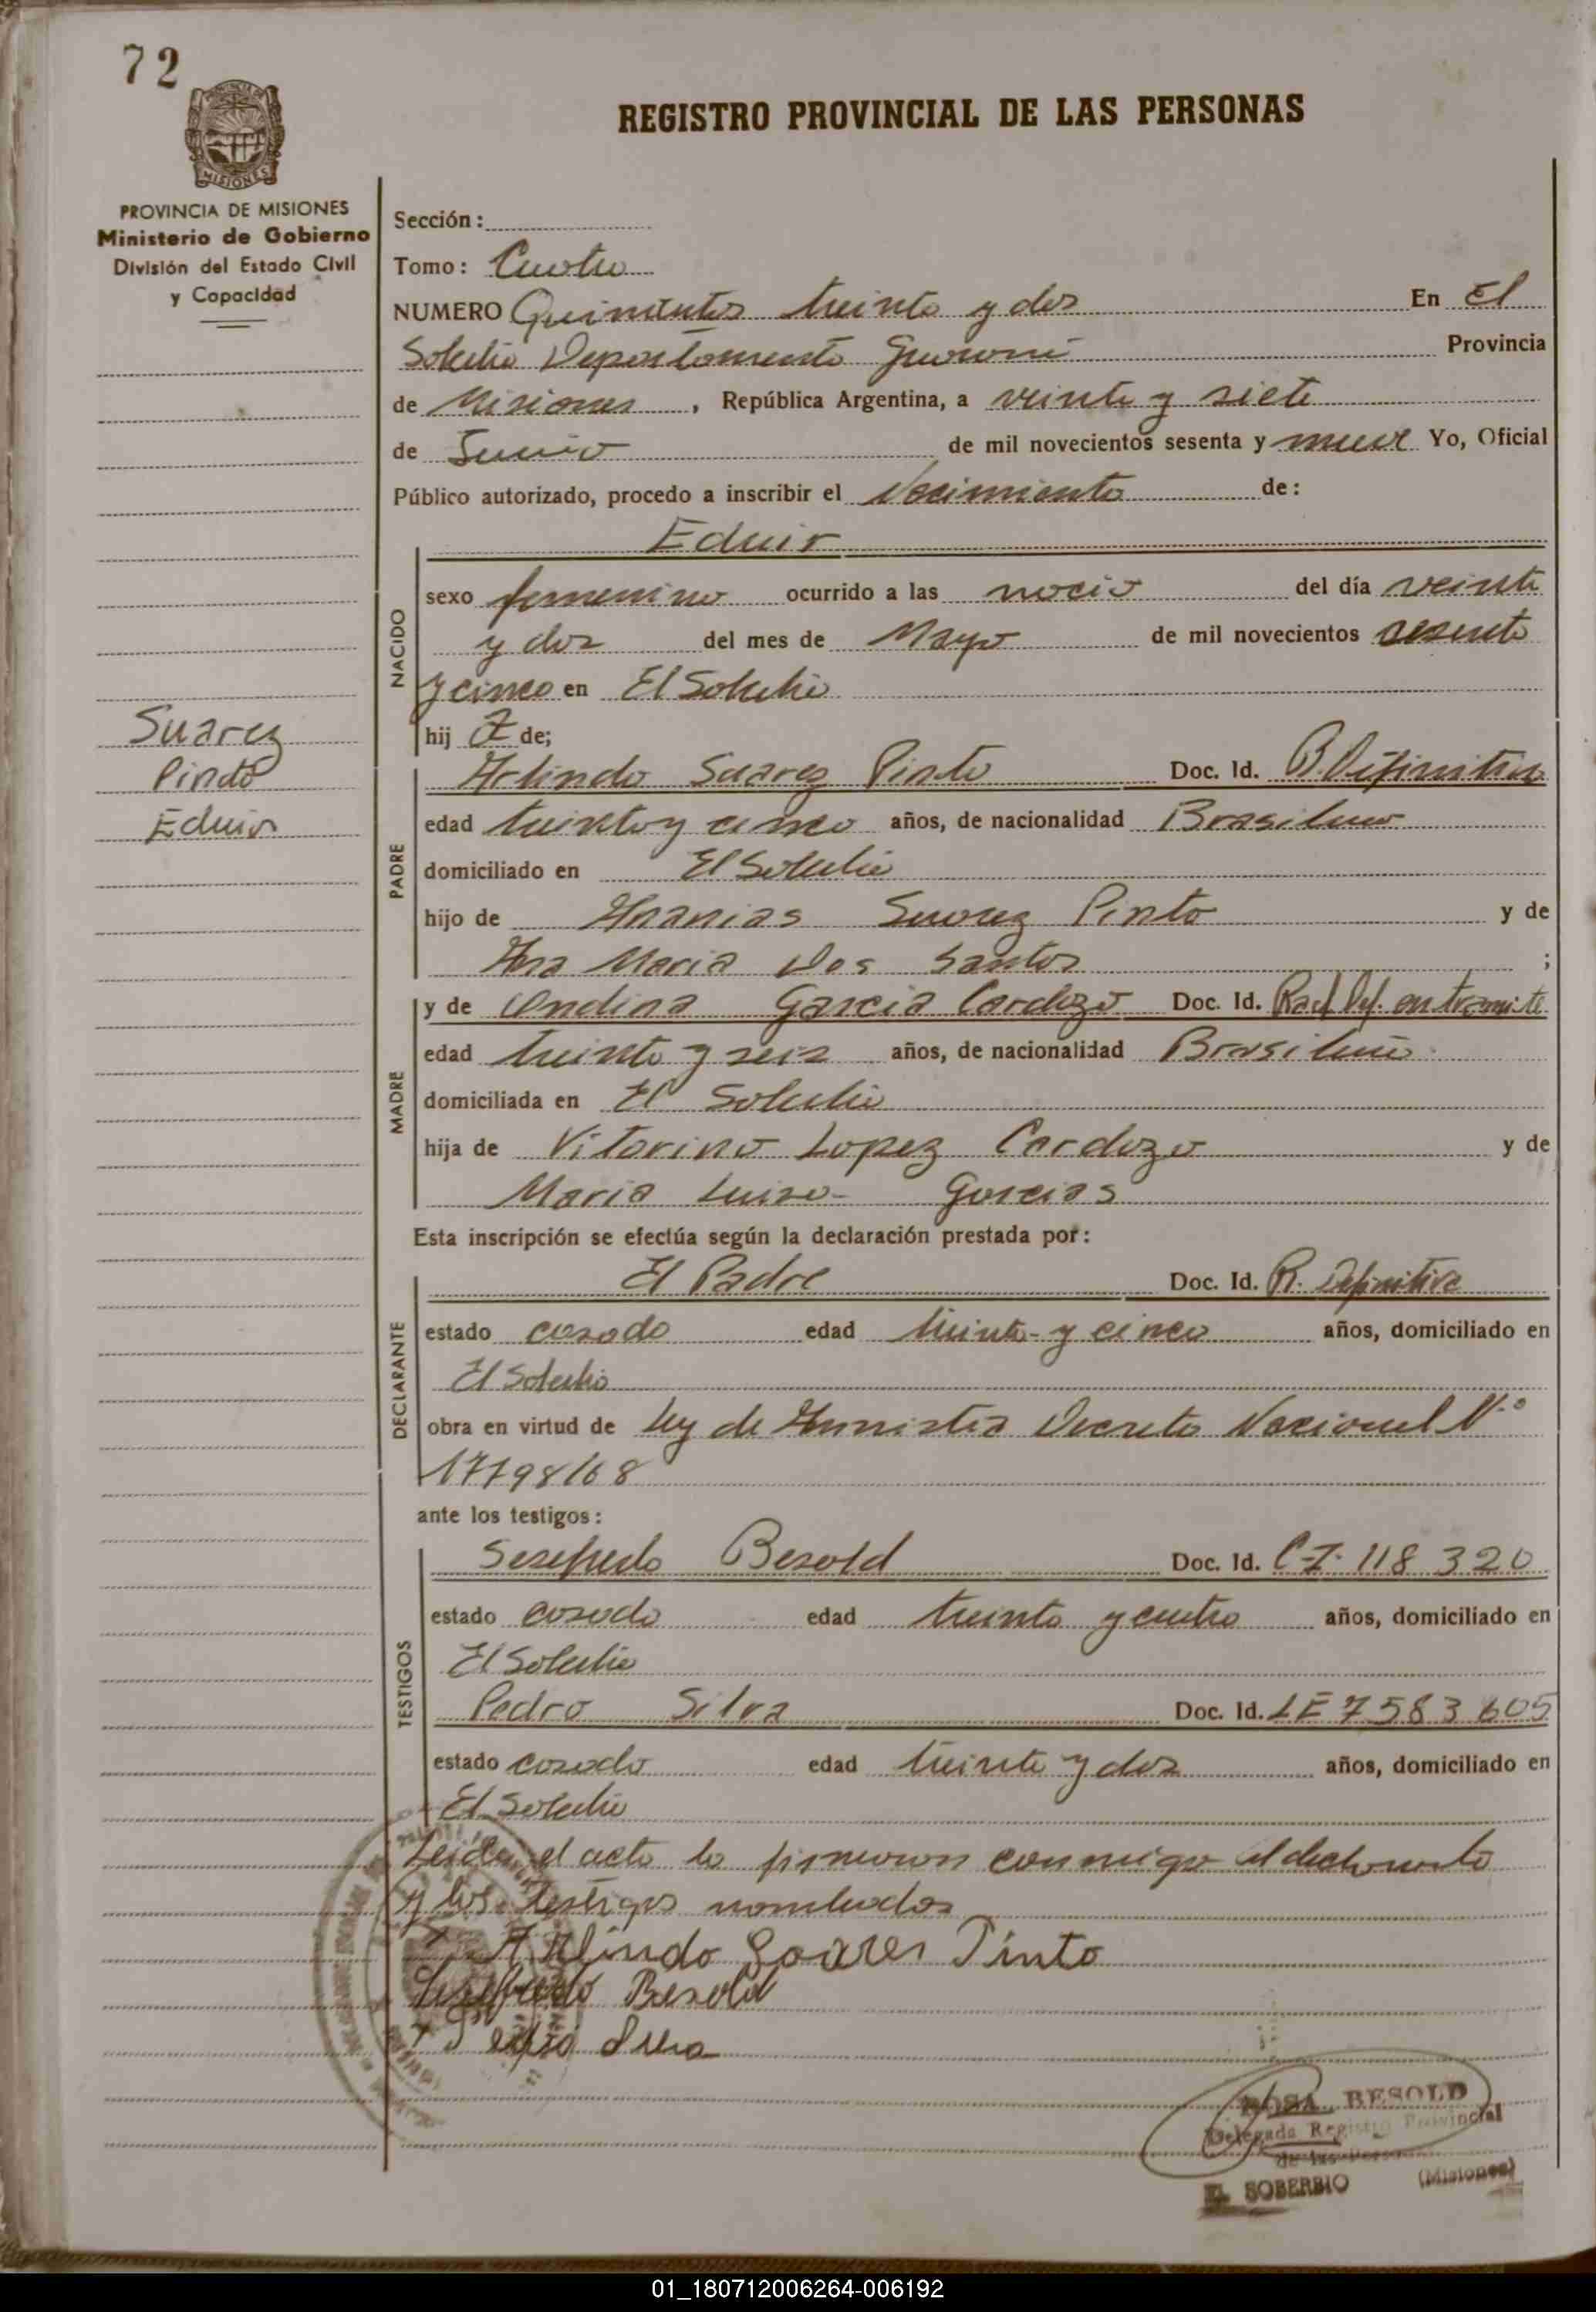 72
REGISTRO PROVINCIAL DE LAS PERSONAS
PROVINCIA DE MISIONES
Ministerio de Gobierno
División del Estado Civil
y Capacidad
Sección:
Tomo: Cuarto
NUMERO Quinientos treinta y dos En El
Soberbio Departamento Guarani Provincia
de Misiones, República Argentina, a veinte y siete
de Junio de mil novecientos sesenta y nueve Yo, Oficial
Público autorizado, procedo a inscribir el Nacimiento de:
Eduir
NACIDO
sexo femenino ocurrido a las del día veinte
y dos del mes de Mayo de mil novecientos sesenta
y cinco en El Soberbio
hij de;
Suarez
Pinto
Eduir
PADRE
Arlindo Suarez Pinto Doc. Id. R. Definitiva
edad treinta y cinco años, de nacionalidad Brasileno
domiciliado en El Soberbio
hijo de Ananias Suarez Pinto y de
Ana Maria Dos Santos ;
MADRE
y de Ondina Garcia Cardozo Doc. Id. Rad Def. en tramite
edad treinta y seis años, de nacionalidad Brasileña
domiciliada en El Soberbio
hija de Vitorino Lopez Cardozo y de
Maria Luiza Garcias
Esta inscripción se efectúa según la declaración prestada por:
DECLARANTE
El Padre Doc. Id. R. Definitiva
estado casado edad treinta y cinco años, domiciliado en
El Soberbio
obra en virtud de Ley de Amnistia Decreto Nacional N°
17798/68
ante los testigos:
TESTIGOS
Sesefredo Besold Doc. Id. C.I. 118 320
estado casado edad treinta y cuatro años, domiciliado en
El Soberbio
Pedro Silva Doc. Id. LE 7583605
estado casado edad treinta y dos años, domiciliado en
El Soberbio
Leida el acta la firmaron conmigo el declarante
y los testigos nombrados
Arlindo Soares Pinto
Sesefredo Besold
Pedro Silva
ROSA BESOLD
Delegada Registro Provincial
de las Personas
EL SOBERBIO (Misiones)
01_180712006264-006192